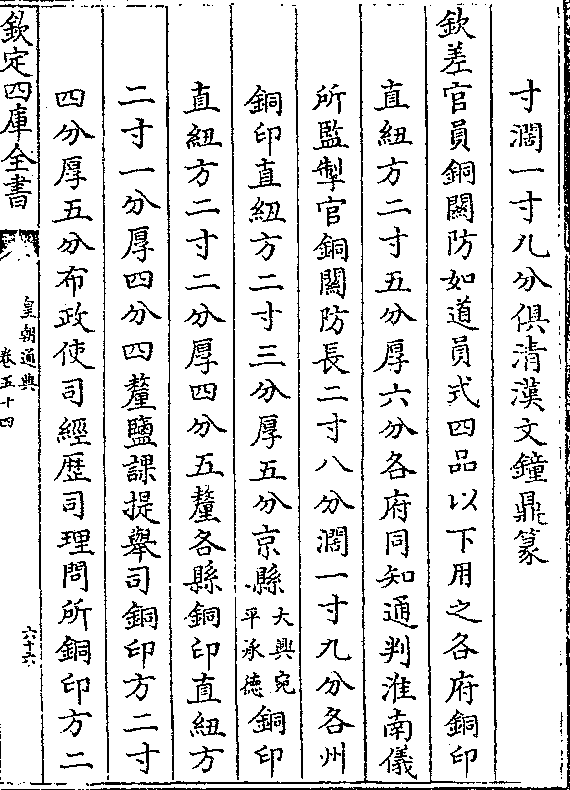 寸濶一寸九分俱清漢文鐘鼎篆
欽差官員銅關防如道員式四品以下用之各府銅印
直紐方二寸五分厚六分各府同知通判淮南儀
所監掣官銅關防長二寸八分濶一寸九分各州
銅印直紐方二寸三分厚五分京縣大興宛平承德銅印
直紐方二寸二分厚四分五釐各縣銅印直紐方
二寸一分厚四分四釐鹽課提舉司銅印方二寸
四分厚五分布政使司經歷司理問所銅印方二
欽定四庫全書
皇朝通典
卷五十四
六十六